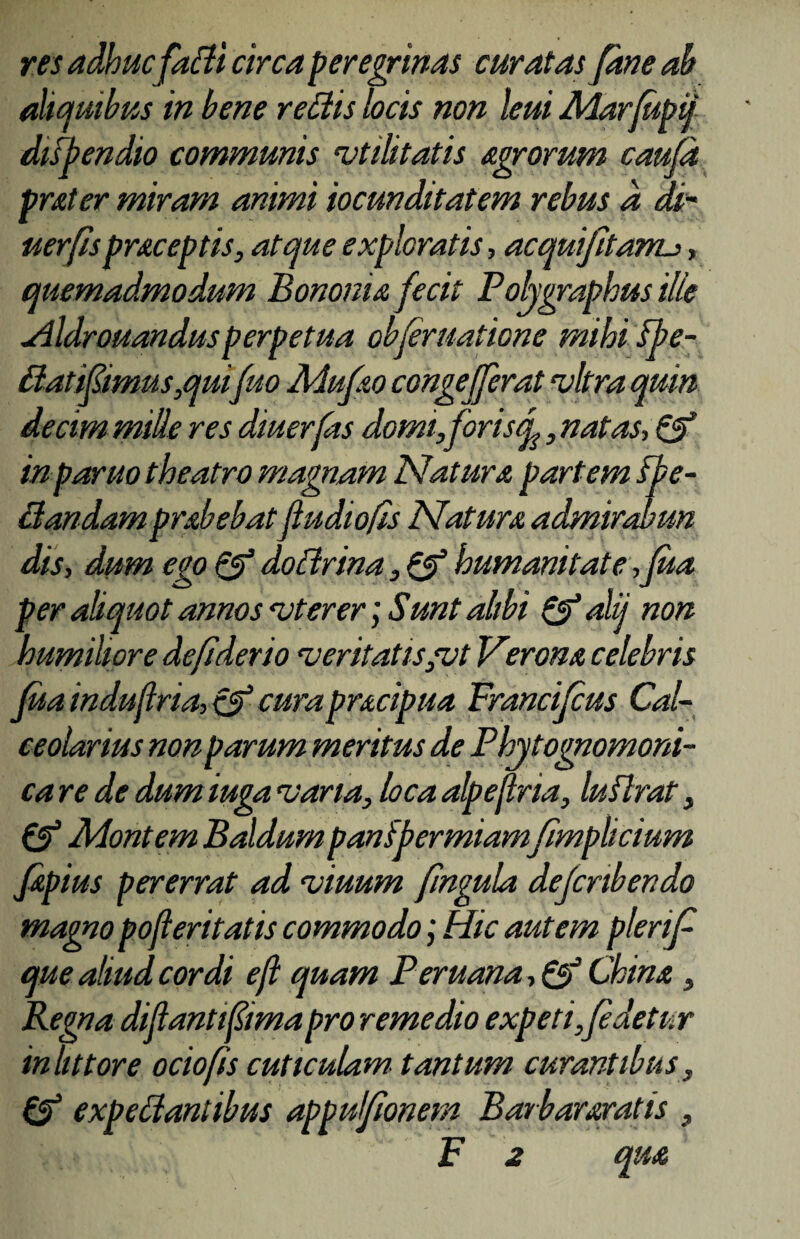 res adhuc facti circa peregrinas curatas ſane ab
aliquibus in bene rectis locis non leui Marſupij
diſpendio communis vtilitatis ægrorum cauſa
præter miram animi iocunditatem rebus à di-
uerſis præceptis, atque exploratis, acquiſitam,
quemadmodum Bononiæ fecit Polygraphus ille
Aldrouandus perpetua obſeruatione mihi ſpe-
ctatiſsimus,qui ſuo Muſæo congeſſerat vltra quin
decim mille res diuerſas domi,foriſq;,natas, &
in paruo theatro magnam Naturæ partem ſpe-
ctandam præbebat ſtudioſis Naturæ admirabun
dis, dum ego & doctrina, & humanitate, ſua
per aliquot annos vterer; Sunt alibi & alij non
humiliore deſiderio veritatis,vt Veronæ celebris
ſua induſtria, & cura præcipua Franciſcus Cal-
ceolarius non parum meritus de Phytognomoni-
ca re de dum iuga varia, loca alpeſtria, luſtrat,
& Montem Baldum panſpermiam ſimplicium
ſæpius pererrat ad viuum ſingula deſcribendo
magno poſteritatis commodo; Hic autem pleriſ-
que aliud cordi eſt quam Peruana, & Chinæ,
Regna diſtantiſsima pro remedio expeti,ſedetur
in littore ocioſis cuticulam tantum curantibus,
& expectantibus appulſionem Barbaræratis,
F 2 quæ